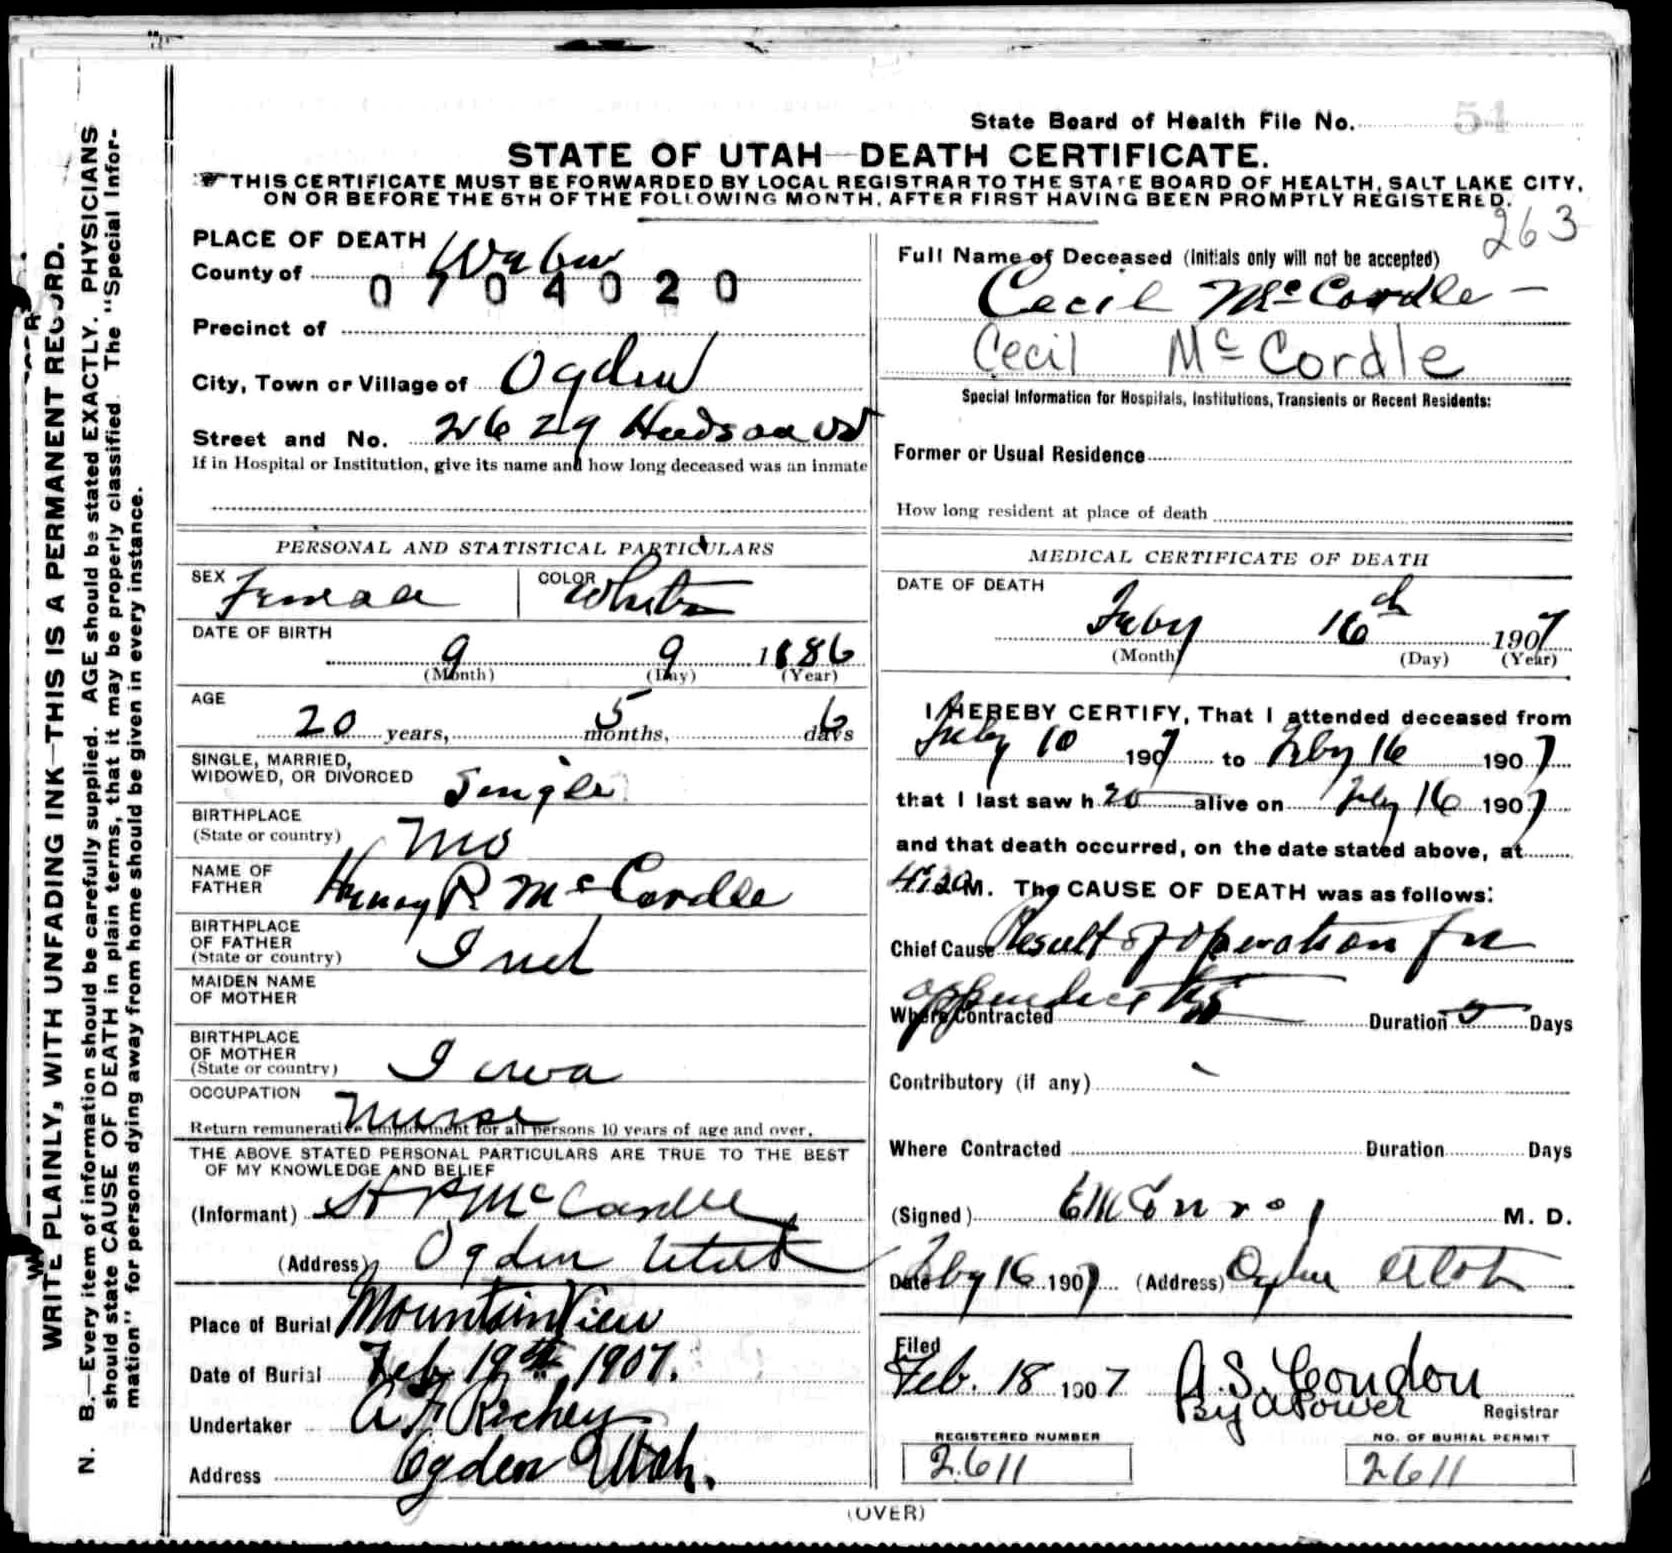 State Board of Health File No. 51
STATE OF UTAH—DEATH CERTIFICATE.
THIS CERTIFICATE MUST BE FORWARDED BY LOCAL REGISTRAR TO THE STATE BOARD OF HEALTH, SALT LAKE CITY,
ON OR BEFORE THE 5TH OF THE FOLLOWING MONTH, AFTER FIRST HAVING BEEN PROMPTLY REGISTERED.
263
WRITE PLAINLY, WITH UNFADING INK—THIS IS A PERMANENT RECORD.
N. B.—Every item of information should be carefully supplied. AGE should be stated EXACTLY. PHYSICIANS
should state CAUSE OF DEATH in plain terms, that it may be properly classified. The "Special Infor-
mation" for persons dying away from home should be given in every instance.
PLACE OF DEATH
County of Weber
0704020
Precinct of
City, Town or Village of Ogden
Street and No. 2629 Hudson
If in Hospital or Institution, give its name and how long deceased was an inmate
PERSONAL AND STATISTICAL PARTICULARS
SEX Female COLOR White
DATE OF BIRTH
9 9 1886
(Month) (Day) (Year)
AGE
20 years, 5 months, 6 days
SINGLE, MARRIED,
WIDOWED, OR DIVORCED Single
BIRTHPLACE
(State or country) Mo
NAME OF
FATHER Henry P. McCordle
BIRTHPLACE
OF FATHER
(State or country) Ind
MAIDEN NAME
OF MOTHER
BIRTHPLACE
OF MOTHER
(State or country) Iowa
OCCUPATION Nurse
Return remunerative employment for all persons 10 years of age and over.
THE ABOVE STATED PERSONAL PARTICULARS ARE TRUE TO THE BEST
OF MY KNOWLEDGE AND BELIEF
(Informant) H P McCordle
(Address) Ogden Utah
Place of Burial Mountain View
Date of Burial Feb. 19th 1907.
Undertaker A F Richey
Address Ogden Utah.
Full Name of Deceased (Initials only will not be accepted)
Cecil McCordle —
Cecil McCordle
Special Information for Hospitals, Institutions, Transients or Recent Residents:
Former or Usual Residence
How long resident at place of death
MEDICAL CERTIFICATE OF DEATH
DATE OF DEATH
Feby 16th 1907
(Month) (Day) (Year)
I HEREBY CERTIFY, That I attended deceased from
Feby 10 1907 to Feby 16 1907
that I last saw h alive on Feby 16 1907
and that death occurred, on the date stated above, at
4:20 M. The CAUSE OF DEATH was as follows:
Chief Cause Result of operation for
appendicitis
Where Contracted Duration 5 Days
Contributory (if any) -
Where Contracted Duration Days
(Signed) E M Conroy M. D.
Date Feby 16 1907 (Address) Ogden Utah
Filed
Feb. 18 1907 A. S. Condon
By A Power Registrar
REGISTERED NUMBER
2611
NO. OF BURIAL PERMIT
2611
(OVER)